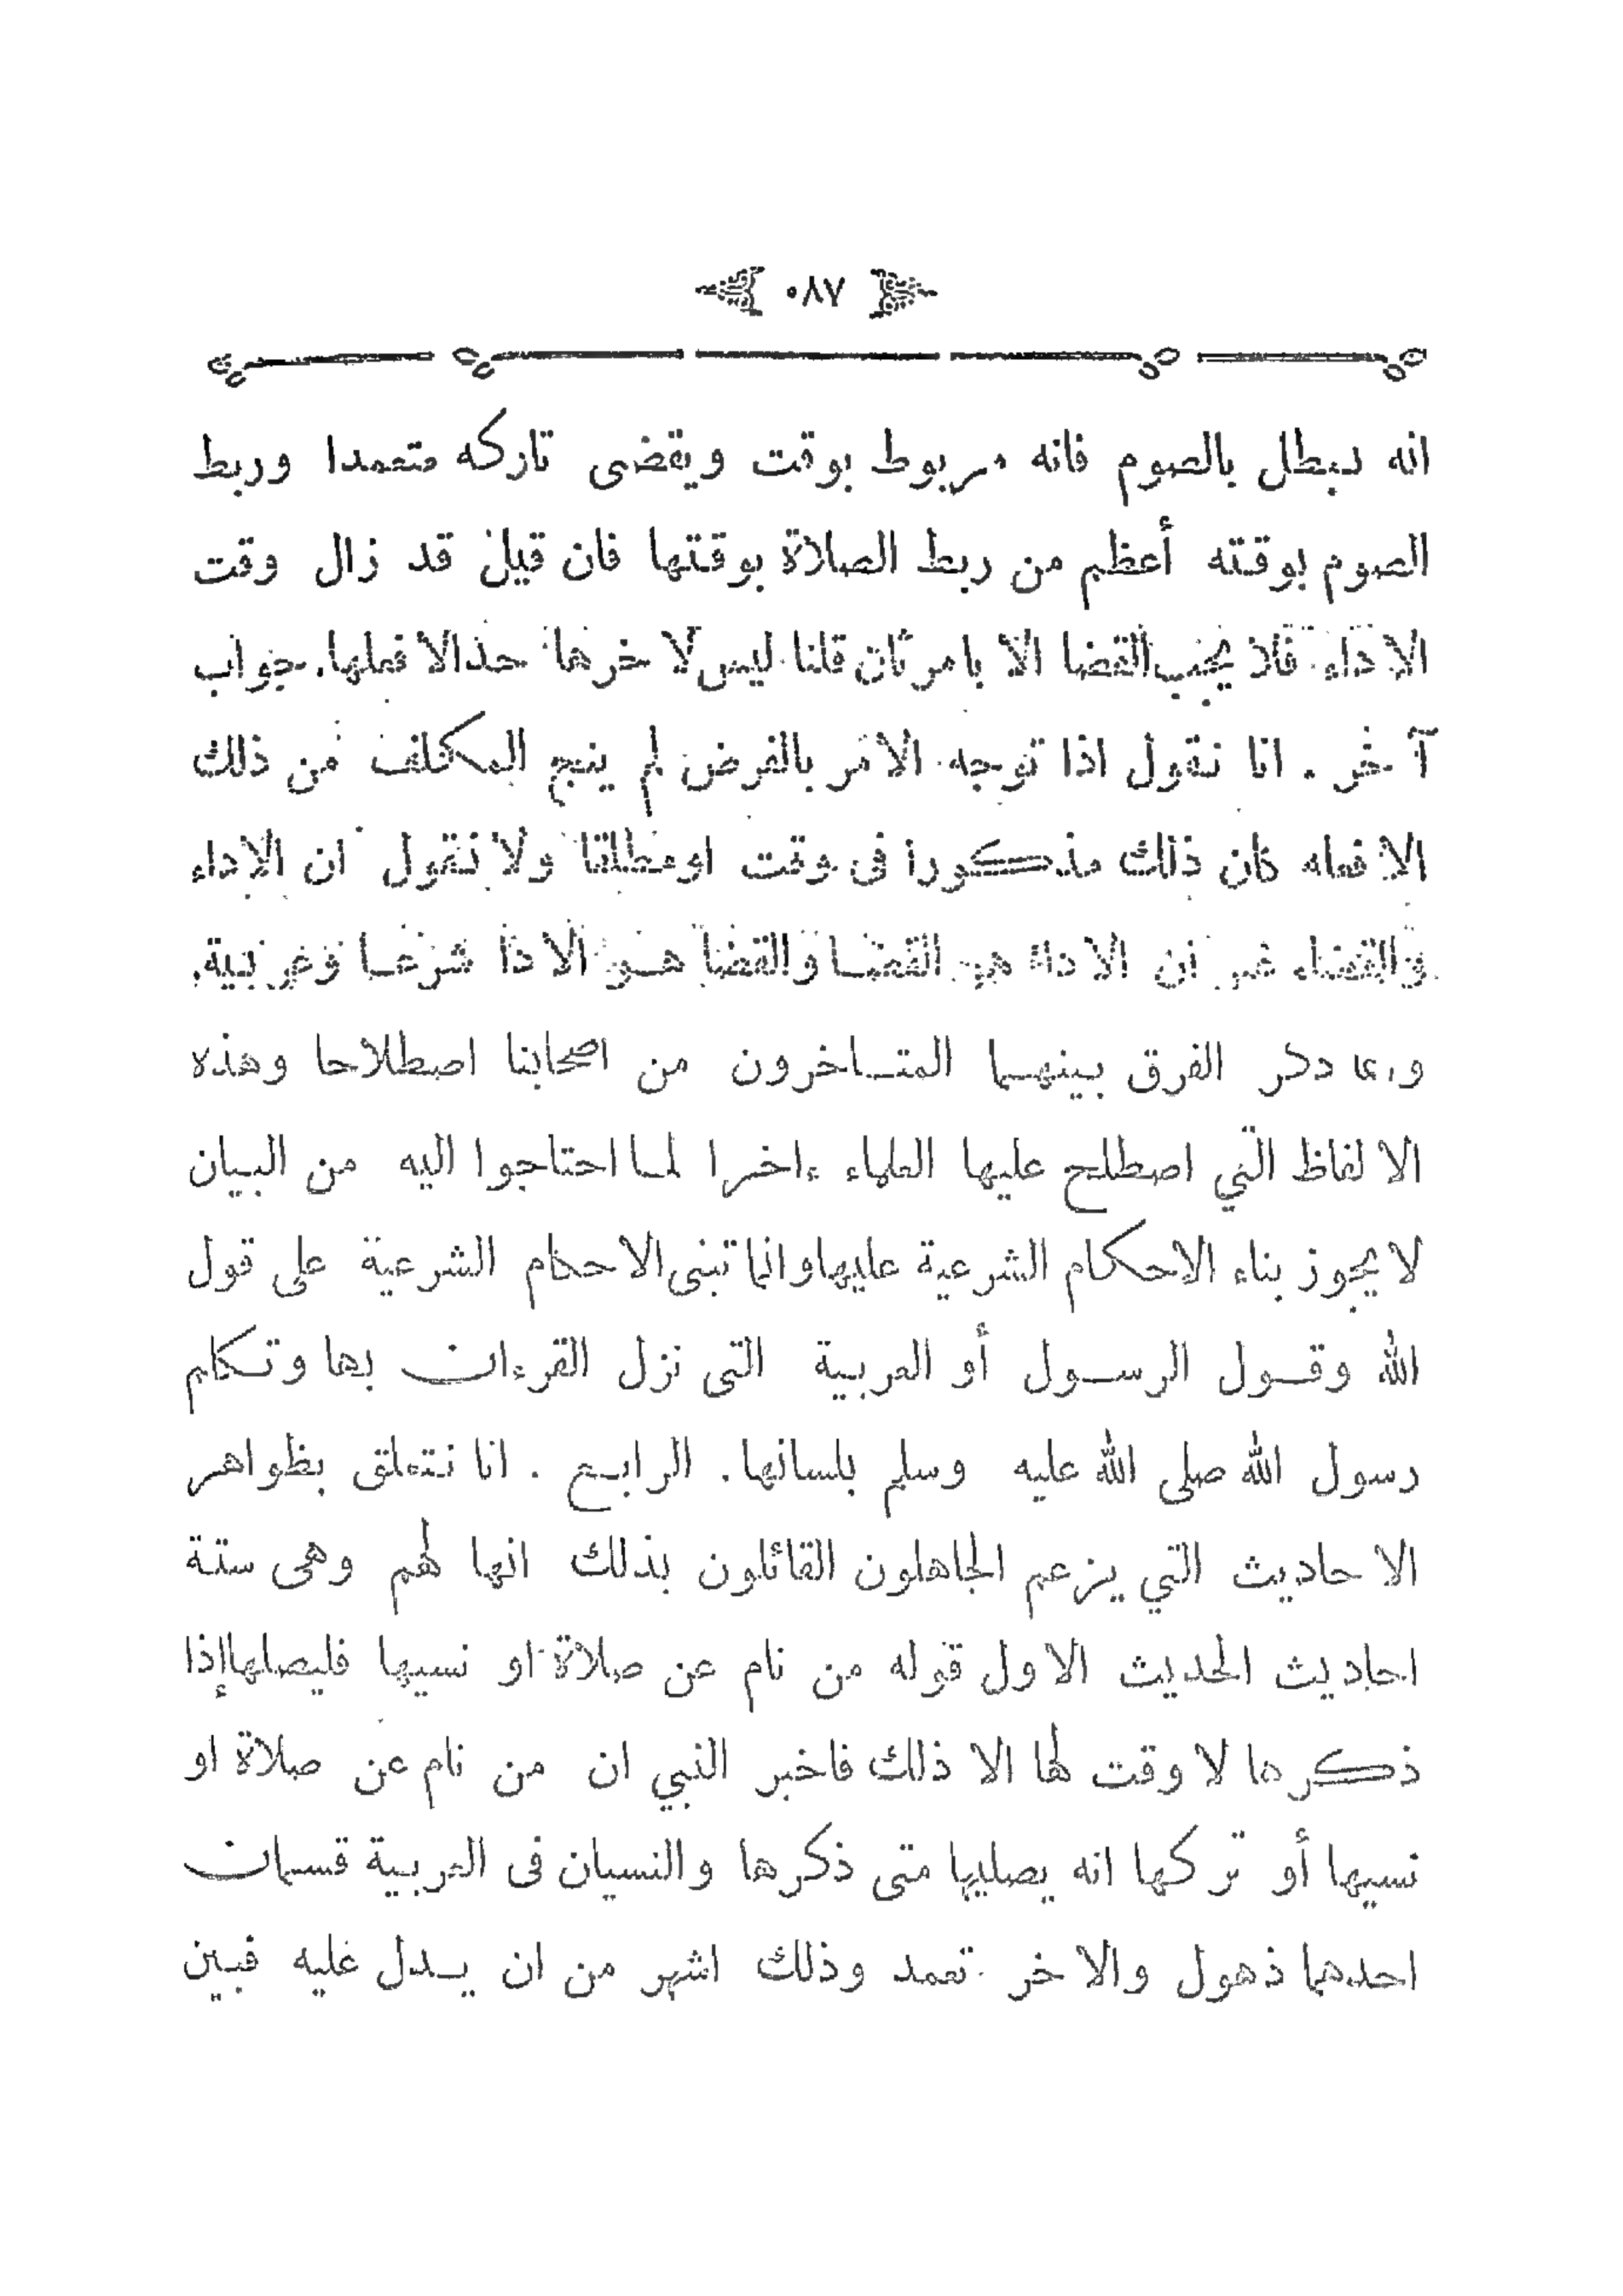 ٠٨٧
انه يبطل بالصوم فانه مربوط بوقت ويقضى تاركه متعمدا وربط
الصوم بوقته أعظم من ربط الصلاة بوقتها فان قيل قد زال وقت
الاداء فلا يجب القضا الا بامر ثان قلنا ليس لاخرها حد الا فعلها. جواب
آخر . انا نقول اذا توجه الامر بالفرض لم ينج المكلف من ذلك
الا فعله كان ذلك مذكورا فى وقت او مطلقا ولا نقول ان الاداء
والقضاء غير ان الاداء هو القضا والقضا هو الادا شرعا وعربية.
وانما ذكر الفرق بينهما المتاخرون من اصحابنا اصطلاحا وهذه
الالفاظ التي اصطلح عليها العلماء ءاخرا لما احتاجوا اليه من البيان
لا يجوز بناء الاحكام الشرعية عليها وانما تبنى الاحكام الشرعية على قول
الله وقول الرسول أو العربية التى نزل القرءان بها وتكلم
رسول الله صلى الله عليه وسلم بلسانها. الرابع . انا نتعلق بظواهر
الاحاديث التي يزعم الجاهلون القائلون بذلك انها لهم وهى ستة
احاديث الحديث الاول قوله من نام عن صلاة او نسيها فليصلها إذا
ذكرها لا وقت لها الا ذلك فاخبر النبي ان من نام عن صلاة او
نسيها أو تركها انه يصليها متى ذكرها والنسيان فى العربية قسمان
احدهما ذهول والاخر تعمد وذلك اشهر من ان يدل عليه فبين